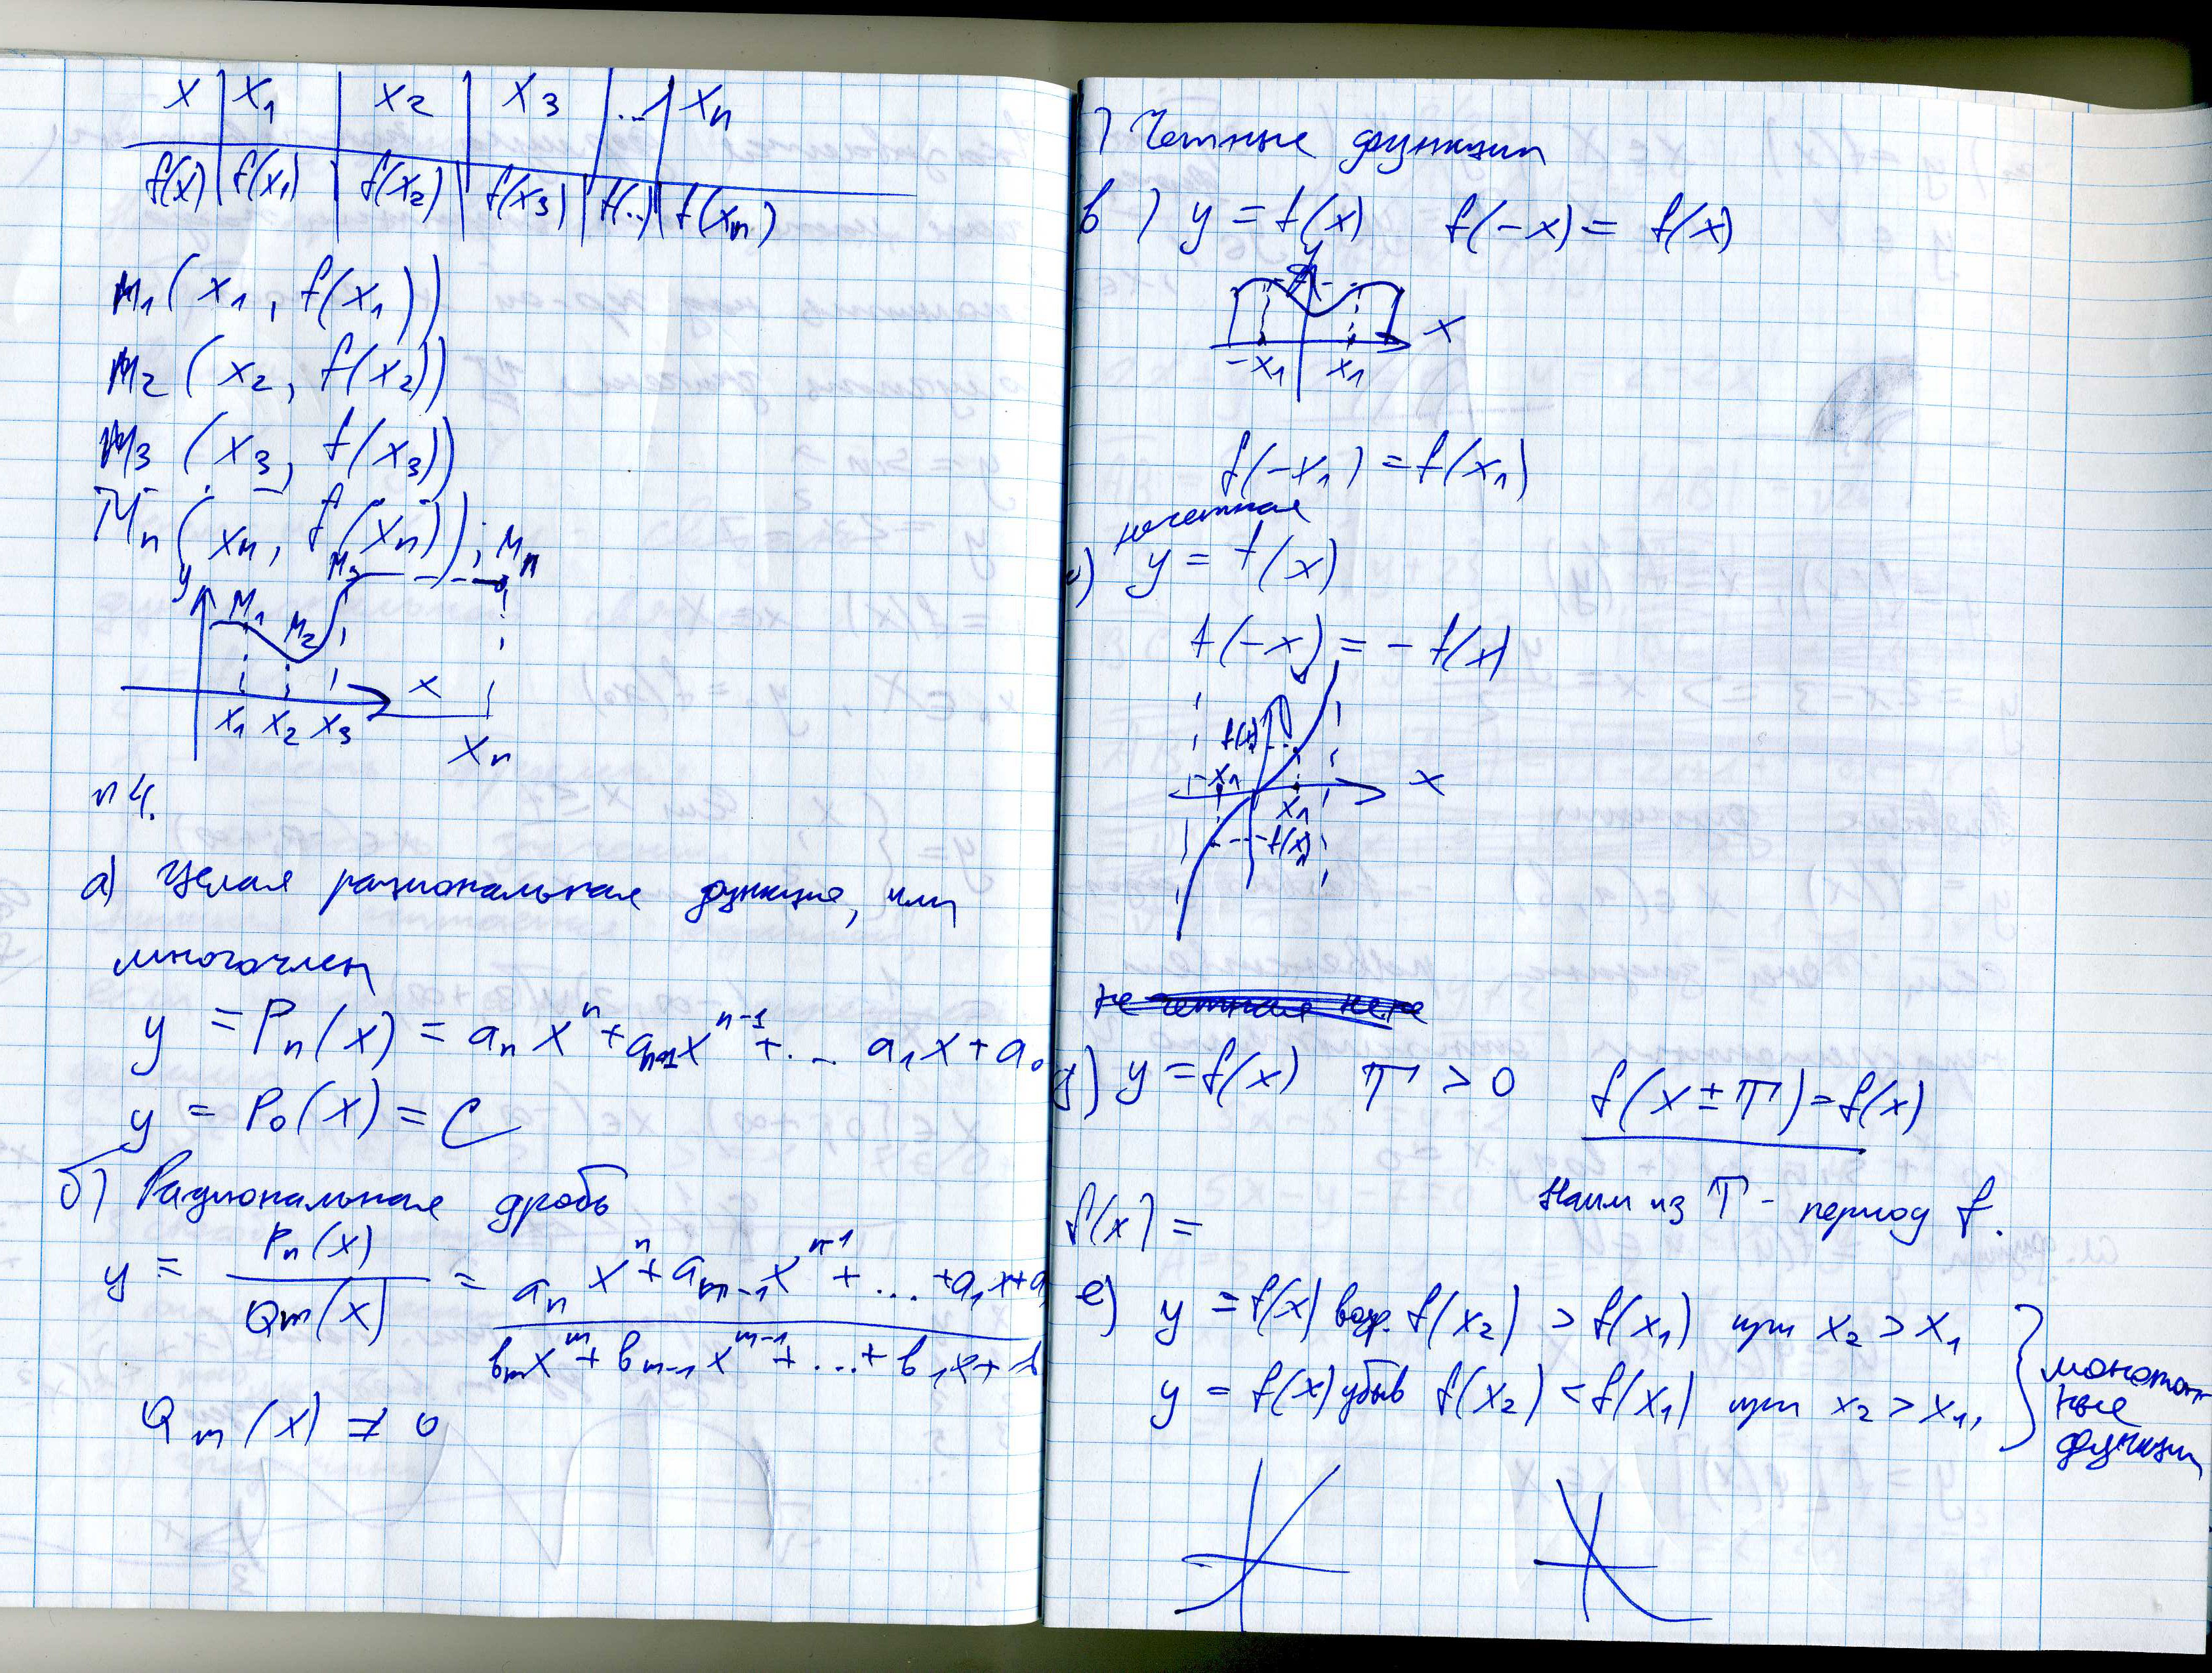 x | x₁ | x₂ | x₃ | ... | xₙ
f(x) | f(x₁) | f(x₂) | f(x₃) | f(..) | f(xₙ)
M₁(x₁, f(x₁))
M₂(x₂, f(x₂))
M₃(x₃, f(x₃))
Mₙ(xₙ, f(xₙ));
y M₁ M₂ M₃ Mₙ
x
x₁ x₂ x₃ xₙ
п 4.
а) Целая рациональная функция, или
многочлен
y = Pₙ(x) = aₙxⁿ + aₙ₋₁xⁿ⁻¹ + ... a₁x + a₀
y = P₀(x) = C
б) Рациональная дробь
y = Pₙ(x)/Qm(x) = (aₙxⁿ + aₙ₋₁xⁿ⁻¹ + ... + a₁x + a)/(bₘxᵐ + bₘ₋₁xᵐ⁻¹ + ... + b₁x + b)
Qₘ(x) ≠ 0
) Четные функции
в) y = f(x) f(-x) = f(x)
y
x
-x₁ x₁
f(-x₁) = f(x₁)
нечетная
) y = f(x)
f(-x) = - f(x)
f(x)
-x₁ x₁ x
-f(x)
д) y = f(x) T > 0 f(x ± T) = f(x)
Наим из T - период f.
f(x) =
е) y = f(x) возр. f(x₂) > f(x₁) при x₂ > x₁
y = f(x) убыв f(x₂) < f(x₁) при x₂ > x₁,
монотон
ные
функции